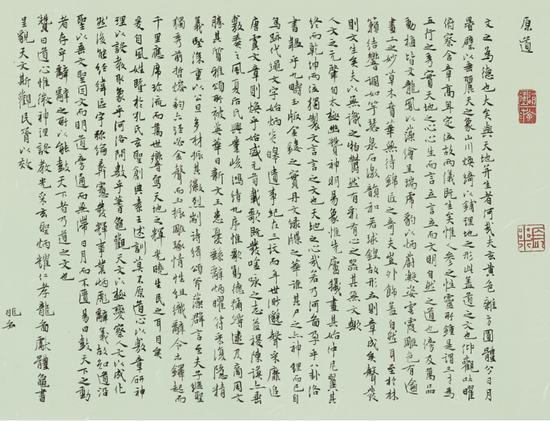 原道
文之為德也大矣與天地並生者何哉夫玄黃色雜方圓體分日月
疊璧以垂麗天之象山川煥綺以鋪理地之形此蓋道之文也仰觀吐曜
俯察含章高卑定位故兩儀既生矣惟人參之性靈所鍾是謂三才為
五行之秀實天地之心心生而言立言立而文明自然之道也傍及萬品
動植皆文龍鳳以藻繪呈瑞虎豹以炳蔚凝姿雲霞雕色有逾
畫工之妙草木賁華無待錦匠之奇夫豈外飾蓋自然耳至於林
籟結響調如竽瑟泉石激韻和若球鍠故形立則章成矣聲發
則文生矣夫以無識之物鬱然有彩有心之器其無文歟
人文之元肇自太極幽贊神明易象惟先庖犧畫其始仲尼翼其
終而乾坤兩位獨制文言言之文也天地之心哉若乃河圖孕乎八卦洛
書韞乎九疇玉版金鏤之實丹文綠牒之華誰其尸之亦神理而已自
鳥跡代繩文字始炳炎皞遺事紀在三墳而年世渺邈聲采靡追
唐虞文章則煥乎始盛元首載歌既發吟詠之志益稷陳謨亦垂
敷奏之風夏后氏興業峻鴻績九序惟歌勳德彌縟逮及商周文
勝其質雅頌所被英華日新文王患憂繇辭炳曜符采復隱精
義堅深重以公旦多材振其徽烈剬詩緝頌斧藻群言至夫子繼聖
獨秀前哲熔鈞六經必金聲而玉振雕琢情性組織辭令木鐸起而
千里應席珍流而萬世響寫天地之輝光曉生民之耳目矣
爰自風姓暨於孔氏玄聖創典素王述訓莫不原道心以敷章研神
理以設教取象乎河洛問數乎蓍龜觀天文以極變察人文以成化
然後能經緯區宇彌綸彝憲發輝事業彪炳辭義故知道沿
聖以垂文聖因文而明道旁通而無滯日用而不匱易曰鼓天下之動
者存乎辭辭之所以能鼓天下者乃道之文也
贊曰道心惟微神理設教光采玄聖炳耀仁孝龍圖獻體龜書
呈貌天文斯觀民胥以效